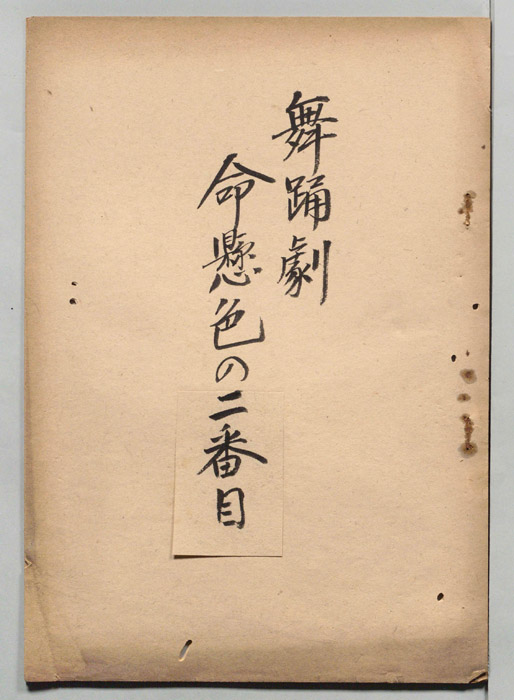 舞踊劇
命懸色の二番目